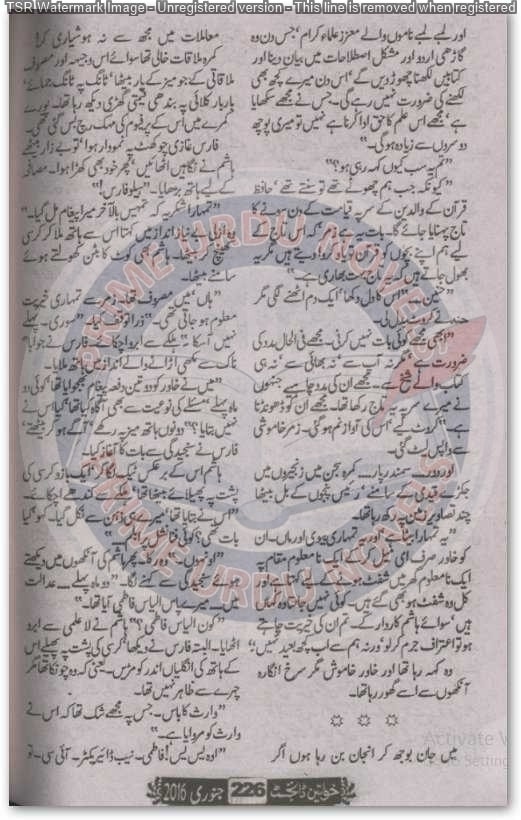 TSR Watermark Image - Unregistered version - This line is removed when registered
اور لمبے لمبے ناموں والے معزز علماء کرام' جس دن وہ
گاڑھی اردو اور مشکل اصطلاحات میں بیان دینا اور
کتابیں لکھنا چھوڑ دیں گے' اس دن میرے کچھ بھی
لکھنے کی ضرورت نہیں رہے گی۔ جس نے مجھے سکھایا
ہے' مجھے اس علم کا حق ادا کرنا ہے نہیں تو میری پوچھ
دوسروں سے زیادہ ہو گی۔"
"تم یہ سب کیوں کہہ رہی ہو؟"
"کیونکہ جب ہم چھوٹے تھے تو سنتے تھے' حافظ
قرآن کے والدین کے سر پہ قیامت کے دن سونے کا
تاج پہنایا جائے گا۔ بات یہ ہے زمر' کہ اس تاج کے
لیے ہم اپنے بچوں کو قرآن تو یاد کروا دیتے ہیں مگر یہ
بھول جاتے ہیں کہ تاج بہت بھاری ہے۔"
"حنین۔۔۔" اس کا دل دکھا' ایک دم اٹھنے لگی مگر
"ابھی مجھے کوئی بات نہیں کرنی۔ مجھے فی الحال مدد کی
ضرورت ہے' مگر نہ آپ سے' نہ بھائی سے' نہ ہی
کتاب والے شیخ سے۔ مجھے ان کی مدد چاہیے جنہوں
نے میرے سر پہ یہ تاج رکھا تھا۔ مجھے ان کو ڈھونڈنا
ہے۔" کروٹ لیے' اس کی آواز نم ہو گئی۔ زمر خاموشی
سے واپس پلٹ گئی۔
اور دور۔۔۔ سمندر پار۔۔۔ کمرہ سجن میں زنجیروں میں
جکڑے قیدی کے سامنے' رئیس پنجوں کے بل بیٹھا
چند تصاویر زمین پہ رکھ رہا تھا۔
"یہ تمہارا بیٹا ہے' اور یہ تمہاری بیوی اور ماں۔ ان
کو خاور صرف ای میل کر کے ایک نامعلوم مقام پہ
ایک نامعلوم گھر میں شفٹ ہونے کے لیے کہنا ہے اور
کل وہ شفٹ ہو بھی گئے ہیں۔ کوئی نہیں جانتا وہ کہاں
ہیں' سوائے ہاشم کاردار کے۔ تم ان کی خیریت چاہتے
ہو تو اعتراف جرم کر لو' ورنہ ہم سے اب کچھ بعید نہیں۔"
وہ کہہ رہا تھا اور خاور خاموش مگر سرخ انگارہ
آنکھوں سے اسے گھور رہا تھا۔
☼ ☼ ☼
میں جان بوجھ کر انجان بن رہا ہوں اکر
معاملات میں مجھ سے نہ ہوشیاری کر!
کمرہ ملاقات خالی تھا سوائے اس وجیہہ اور مصروف
ملاقاتی کے جو میز کے پار بیٹھا' ٹانگ پہ ٹانگ جمائے'
بار بار کلائی پہ بندھی قیمتی گھڑی دیکھ رہا تھا۔ پورے
کمرے میں اس کے پرفیوم کی مہک رچ بس گئی تھی۔
فارس غازی چوکھٹ پہ نمودار ہوا' تو بے زار بیٹھے
ہاشم نے نگاہیں اٹھائیں' پھر خود بھی کھڑا ہوا۔ مصافحہ
کے لیے ہاتھ بڑھایا۔ "ہیلو فارس!"
"تمہارا شکریہ کہ تمہیں بالآخر میرا پیغام مل گیا۔"
وہ ازلی بے نیاز انداز میں کہتا اس سے ہاتھ ملا کر کرسی
کھینچ کر بیٹھا۔ ہاشم بھی کوٹ کا بٹن کھولتے ہوئے
سامنے بیٹھا۔
"ہاں' میں مصروف تھا۔ زمر سے تمہاری خیریت
معلوم ہو جاتی تھی۔" ذرا توقف کیا۔ "سوری۔ پہلے
نہیں آ سکا۔" ہلکے سے ابرو اچکائے۔ فارس نے جواباً
ناک سے مکھی اڑانے والے انداز میں ہاتھ ہلایا۔
"میں نے خاور کو دو تین دفعہ پیغام بھجوایا تھا' کوئی دو
ماہ پہلے' مسئلے کی نوعیت سے بھی آگاہ کیا تھا' کیا اس نے
نہیں بتایا؟" دونوں ہاتھ میز پہ رکھے' آگے ہو کر بیٹھتے'
فارس نے سنجیدگی سے بات کا آغاز کیا۔
ہاشم اس کے برعکس ٹیک لگا کر' ایک بازو کرسی کی
پشت پہ پھیلائے بیٹھا تھا' ہلکے سے کندھے اچکائے۔
"اس نے بتایا تھا' میرے ہی ذہن سے نکل گیا۔ کہو' کیا
بات تھی؟ کوئی فنانشل پرابلم ہے؟"
"اونہوں۔" وہ رکا۔ پھر ہاشم کی آنکھوں میں دیکھتے
ہوئے سنجیدگی سے کہنے لگا۔ "دو ماہ پہلے۔۔۔ عدالت
میں۔۔۔ میرے پاس الیاس فاطمی آیا تھا۔"
"کون الیاس فاطمی؟" ہاشم نے لاعلمی سے ابرو
اٹھایا۔ البتہ فارس نے دیکھا' کرسی کی پشت پہ پھیلے اس
کے ہاتھ کی انگلیاں اندر کو مڑیں۔ یعنی کہ وہ چونکا تھا مگر
چہرے سے ظاہر نہیں تھا۔
"وارث کا باس۔ جس پہ مجھے شک تھا کہ اس نے
وارث کو مروایا ہے۔"
"اوہ یس یس! فاطمی۔ نیب ڈائریکٹر۔ آئی سی۔ تو
خواتین ڈائجسٹ 226 جنوری 2016
PRIME URDU NOVELS
PRIME URDU NOVELS